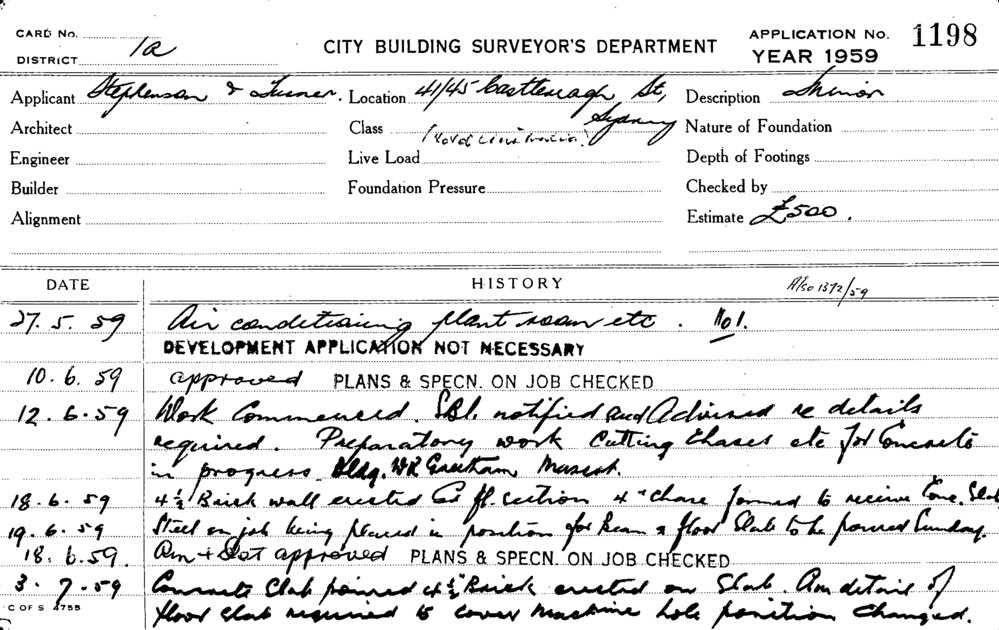 CARD No.
DISTRICT 1a
CITY BUILDING SURVEYOR'S DEPARTMENT
APPLICATION No. 1198
YEAR 1959
Applicant Stephenson & Turner. Location 41/45 Castlereagh St, Sydney Description Minor
Architect Class Nature of Foundation
Engineer Live Load Depth of Footings
Builder Foundation Pressure Checked by
Alignment Estimate £500.
DATE HISTORY Also 1372/59
27.5.59 Air conditioning plant room etc. No 1.
DEVELOPMENT APPLICATION NOT NECESSARY
10.6.59 approved PLANS & SPECN. ON JOB CHECKED
12.6.59 Work Commenced. notified and Advised re details
required. Preparatory work Cutting Chases etc for Concrete
in progress Bldg.
18.6.59 4½ Brick wall erected fl. section 4" Chase formed to receive Conc. Slab
19.6.59 Steel on job being placed in position for Beam & floor Slab to be poured Sunday.
18.6.59. approved PLANS & SPECN. ON JOB CHECKED
3.7.59 Concrete Slab poured 4½ Brick erected on Slab. Am detail of
C OF S 4755 floor slab required to cover Machine hole position Changed.